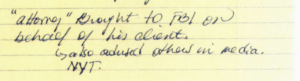 "attorney" brought to FBI on
behalf of his client.
↳ also advised others in media.
NYT.